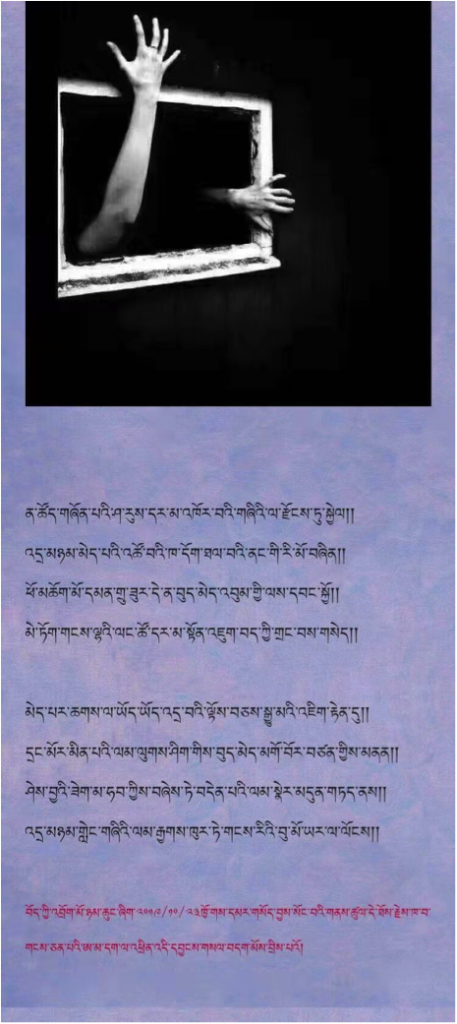 ན་ཚོད་གཞོན་པའི་ཤ་རུས་དར་མ་འཁོར་བའི་གཞིའི་ལ་རྫོངས་ཏུ་སྐྱེལ།།
འདྲ་མཉམ་མེད་པའི་འཚོ་བའི་ཁ་དོག་ཐལ་བའི་ནང་གི་རི་མོ་བཞིན།།
ཕོ་མཆོག་མོ་དམན་གྲུ་ཟུར་དེ་ན་བུད་མེད་འབུམ་གྱི་ལས་དབང་སྐྱོ།།
མེ་ཏོག་གངས་ལྷའི་ལང་ཚོ་དར་མ་སྟོན་འཇུག་བད་ཀྱི་གྲང་བས་གསེད།།
མེད་པར་ཆགས་ལ་ཡོད་ཡོད་འདྲ་བའི་ལྟོས་བཅས་སྒྱུ་མའི་འཇིག་རྟེན་དུ།།
དྲང་མོར་མིན་པའི་ལམ་ལུགས་ཤིག་གིས་བུད་མེད་མགོ་བོར་བཙན་གྱིས་མནན།།
ཤེས་བྱའི་ཟེག་མ་ཧབ་ཀྱིས་བཞེས་ཏེ་བདེན་པའི་ལམ་སྣེར་མདུན་གཏད་ནས།།
འདྲ་མཉམ་གླེང་གཞིའི་ལམ་རྒྱགས་ཁུར་ཏེ་གངས་རིའི་བུ་མོ་ཡར་ལ་ལོངས།།
བོད་ཀྱི་འབྲོག་མོ་ཉམ་ཆུང་ཞིག་༢༠༡༩/༡༠/༢༣ཁྱོ་གས་དམར་གསོད་བྱས་སོང་བའི་གནས་ཚུལ་དེ་ཐོས་རྗེས་ཁ་བ་
གངས་ཅན་པའི་ཨ་མ་དག་ལ་འཕྲིན་འདི་དབྱངས་གསལ་བདག་མོས་བྲིས་པའོ།